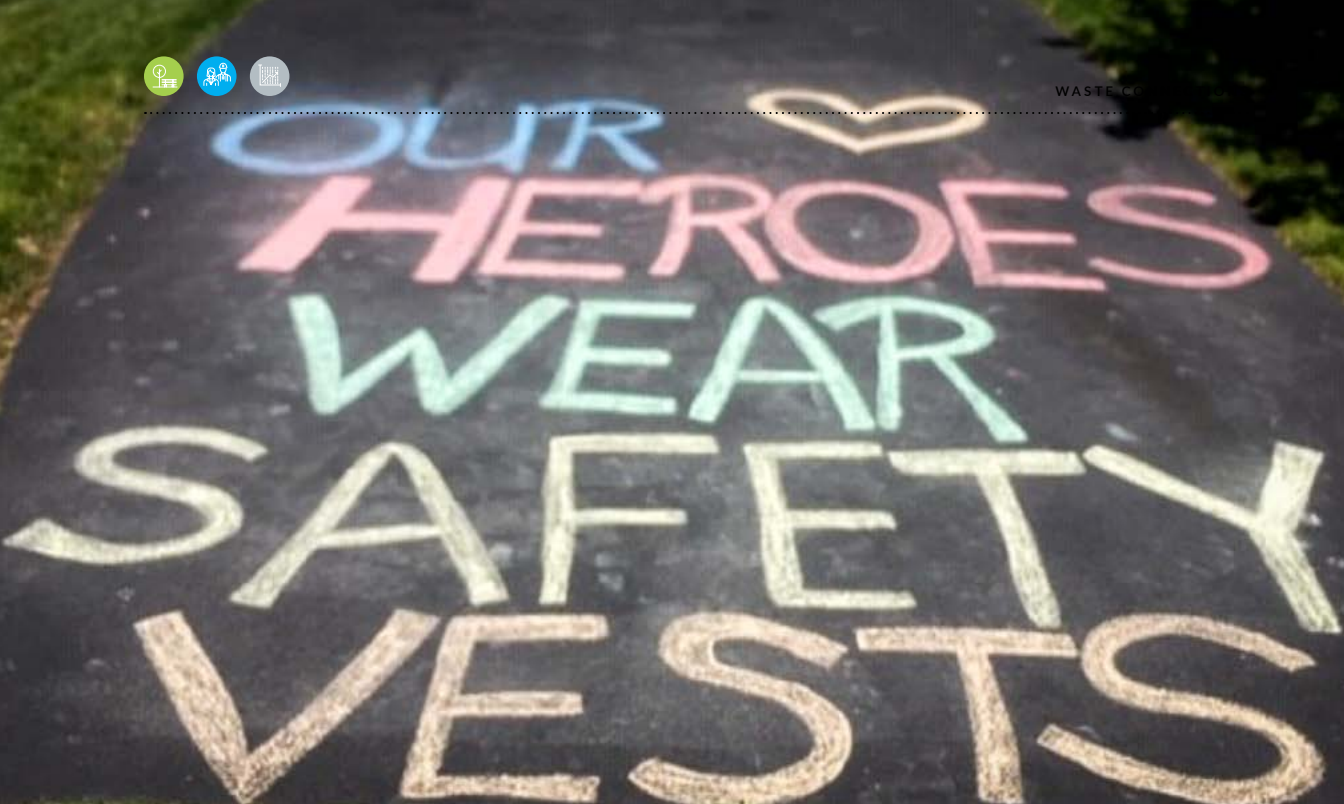 WASTE
OUR
HEROES
WEAR
SAFETY
VESTS